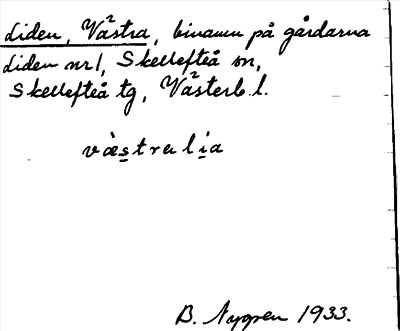 Liden, Västra, binamn på gårdarna
Liden nr 1, Skellefteå sn,
Skellefteå tg, Västerb. l.
västralia
B. Nygren 1933.